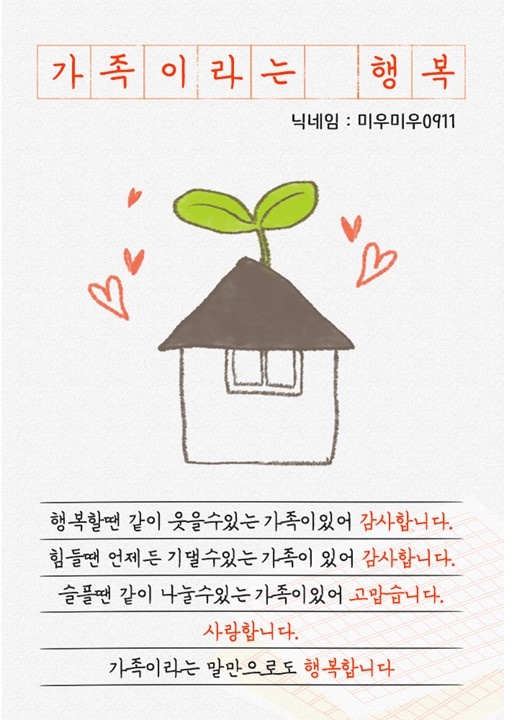 가족이라는 행복
닉네임 : 미우미우0911
행복할땐 같이 웃을수있는 가족이있어 감사합니다.
힘들땐 언제든 기댈수있는 가족이 있어 감사합니다.
슬플땐 같이 나눌수있는 가족이있어 고맙습니다.
사랑합니다.
가족이라는 말만으로도 행복합니다